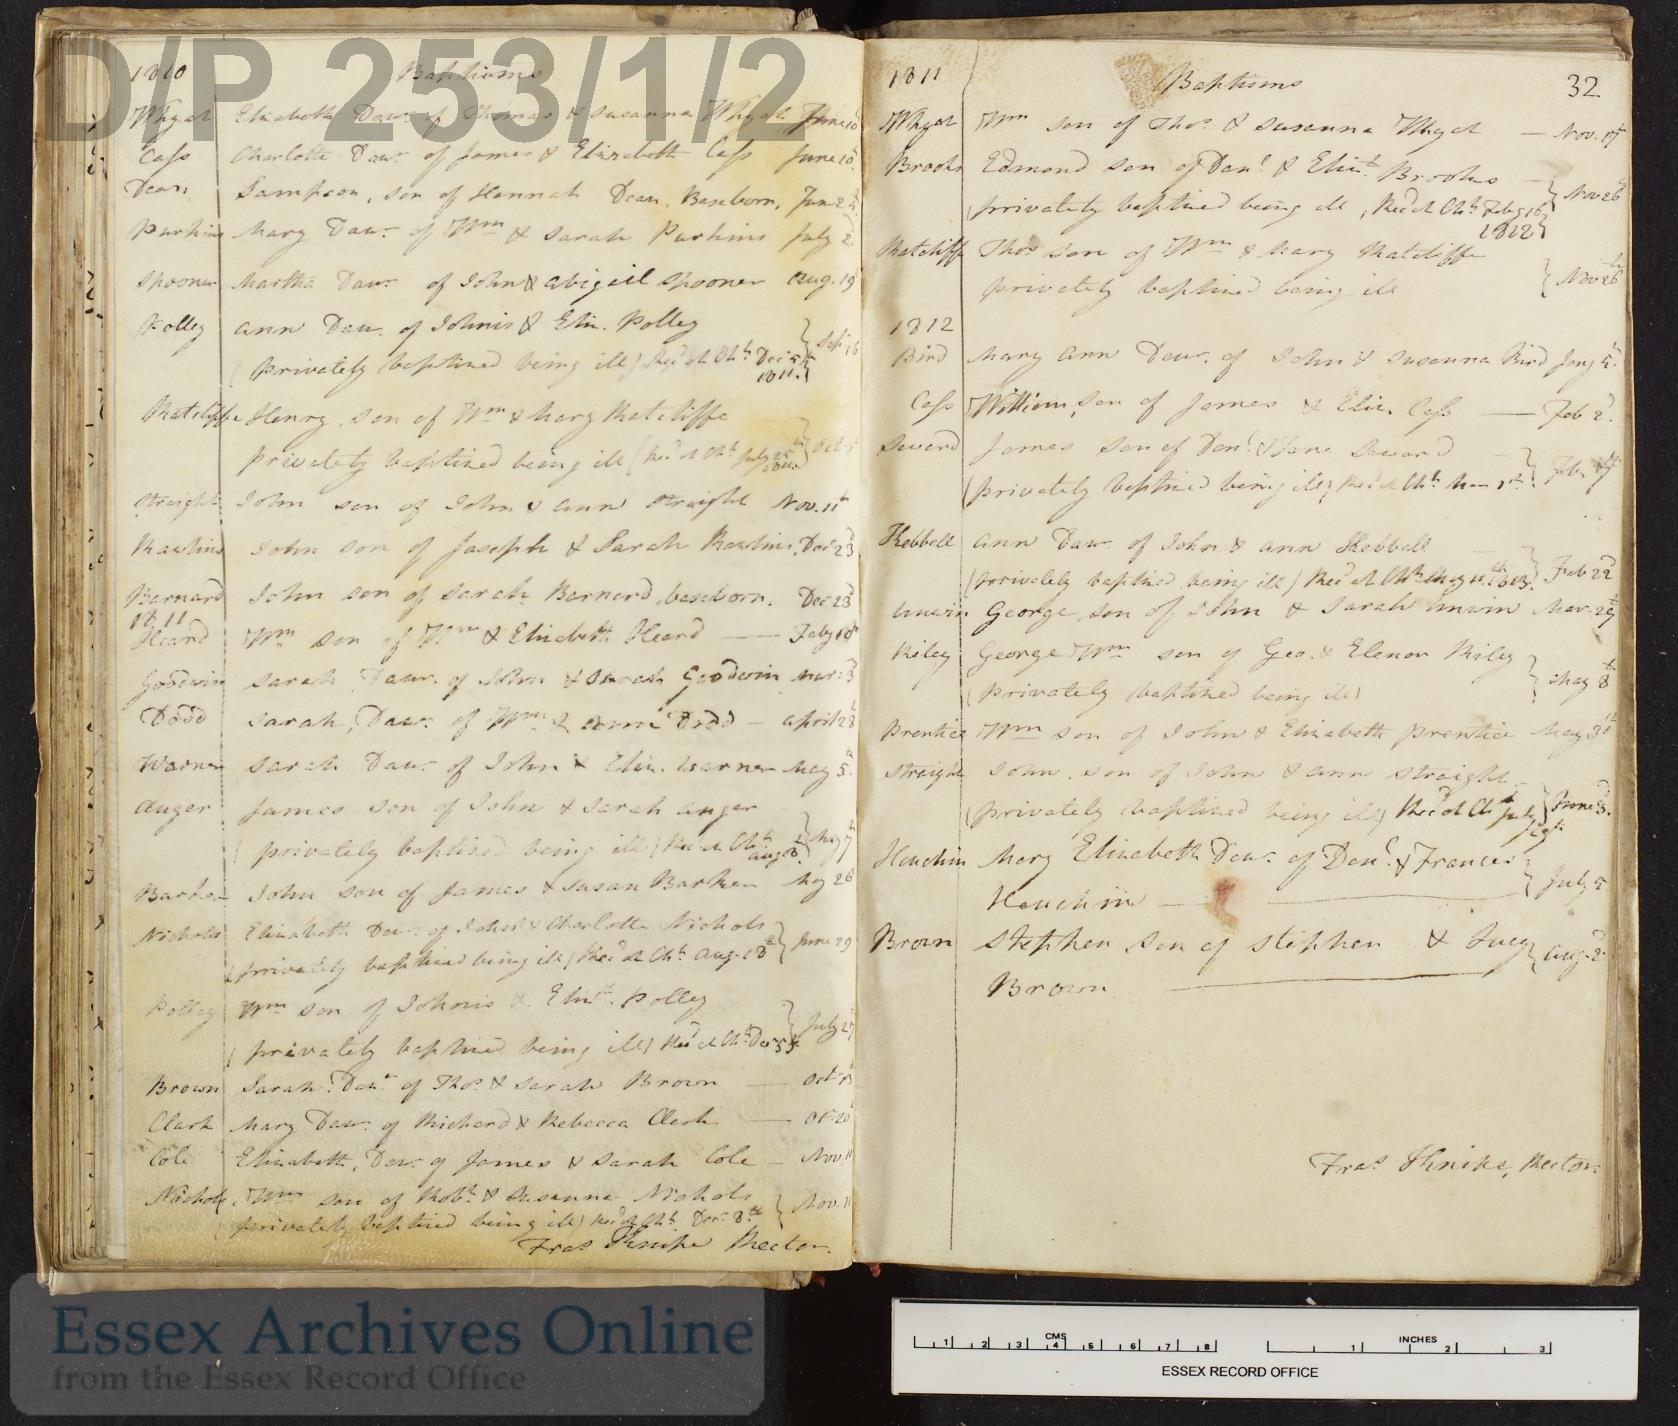 D/P 253/1/2
1810 Baptisms
Whyat Elizabeth Dawr. of Thomas & Susanna Whyat June 10
Cass Charlotte Dawr. of James & Elizabeth Cass June 10
Dean Sampson, son of Hannah Dean, Baseborn, June 24
Purkins Mary Dawr. of Wm & Sarah Purkins July 2
Spooner Martha Dawr. of John & Abigail Spooner Aug. 19
Polley Ann Dawr. of Johnis & Eliz. Polley
(privately baptized being ill) Recd at Chh Decr 5th Sepr 16
1811
Ratcliffe Henry son of Wm & Mary Ratcliffe
privately baptized being ill (Recd at Chh July 25 Octr
Straight John son of John & Ann Straight Nov. 11th
Rawlins John son of Joseph & Sarah Rawlins Decr 23
Barnard John son of Sarah Barnard, baseborn. Decr 23
1811
Heard Wm son of Wm & Elizabeth Heard — Feby 10th
Goodwin Sarah Dawr. of John & Sarah Goodwin Mar. 3
Dodd Sarah, Dawr. of Wm & Dodd — April 28
Warner Sarah Dawr. of John & Eliz. Warner May 5th
Auger James son of John & Sarah Auger
(privately baptized being ill) Recd at Chh May 7th
Aug 18
Barker John son of James & Susan Barker May 26
Nichols Elizabeth Dawr. of John & Charlotte Nichols
(privately baptized being ill) Recd at Chh Aug. 18 June 29
Polley Wm son of Johnis & Elizth. Polley
(privately baptized being ill) Recd at Chh Decr 5th July 27
Brown Sarah Dawr of Thos. & Sarah Brown — Octr 13
Clark Mary Dawr. of Richard & Rebecca Clark — Oct 20
Cole Elizabeth, Dawr. of James & Sarah Cole — Nov. 10
Nichols Wm son of Robt & Susanna Nichols
(privately baptized being ill) Recd at Chh Decr 8th Nov. 11
Fras Thriske Rector.
1811 Baptisms 32
Whyat Wm son of Thos. & Susanna Whyat — Nov. 17th
Brooks Edmond son of Danl & Elizth Brooks
(privately baptized being ill, Recd at Chh Feby 16 Nov 26
1812)
Ratcliffe Thos son of Wm & Mary Ratcliffe
privately baptized being ill Nov 26th
1812
Bird Mary Ann Dawr. of John & Susanna Bird Jany 5.
Cass William, son of James & Eliz. Cass — Feb 2d.
Seward James son of Danl & Jane Seward
(privately baptized being ill) Recd at Chh Mar 1st. Feb 7th
Kebbell Ann Dawr. of John & Ann Kebbell
(privately baptized being ill) Recd at Chh May 11th 1813. Feb 22d
Unwin George, son of John & Sarah Unwin Mar. 29th
Riley George Wm son of Geo. & Elenor Riley
(privately baptized being ill) May 8th
Prentice Wm son of John & Elizabeth Prentice May 31st
Straight John, son of John & Ann Straight
(privately baptized being ill) Recd at Chh July June 3d.
Houchin Mary Elizabeth Dawr. of Danl. & Frances
Houchin — July 5
Brown Stephen son of Stephen & Lucy Aug. 2d
Brown
Fras Thriske, Rector.
Essex Archives Online
from the Essex Record Office
CMS
1 2 3 4 5 6 7 8
INCHES
1 2 3
ESSEX RECORD OFFICE